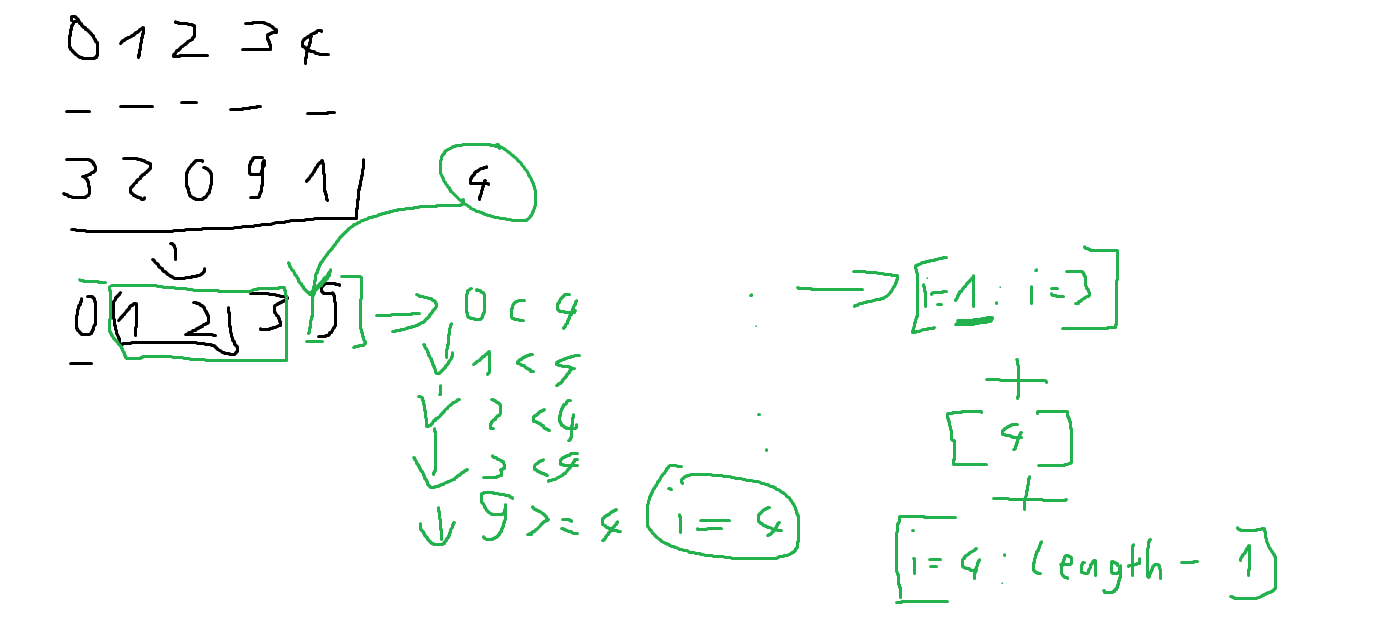 0 1 2 3 4
3 2 0 9 1 4
0 1 2 3 9
0 < 4
1 < 4
2 < 4
3 < 4
9 >= 4
i = 4
[i=1 : i=3]
+
[4]
+
[i=4 : length - 1]